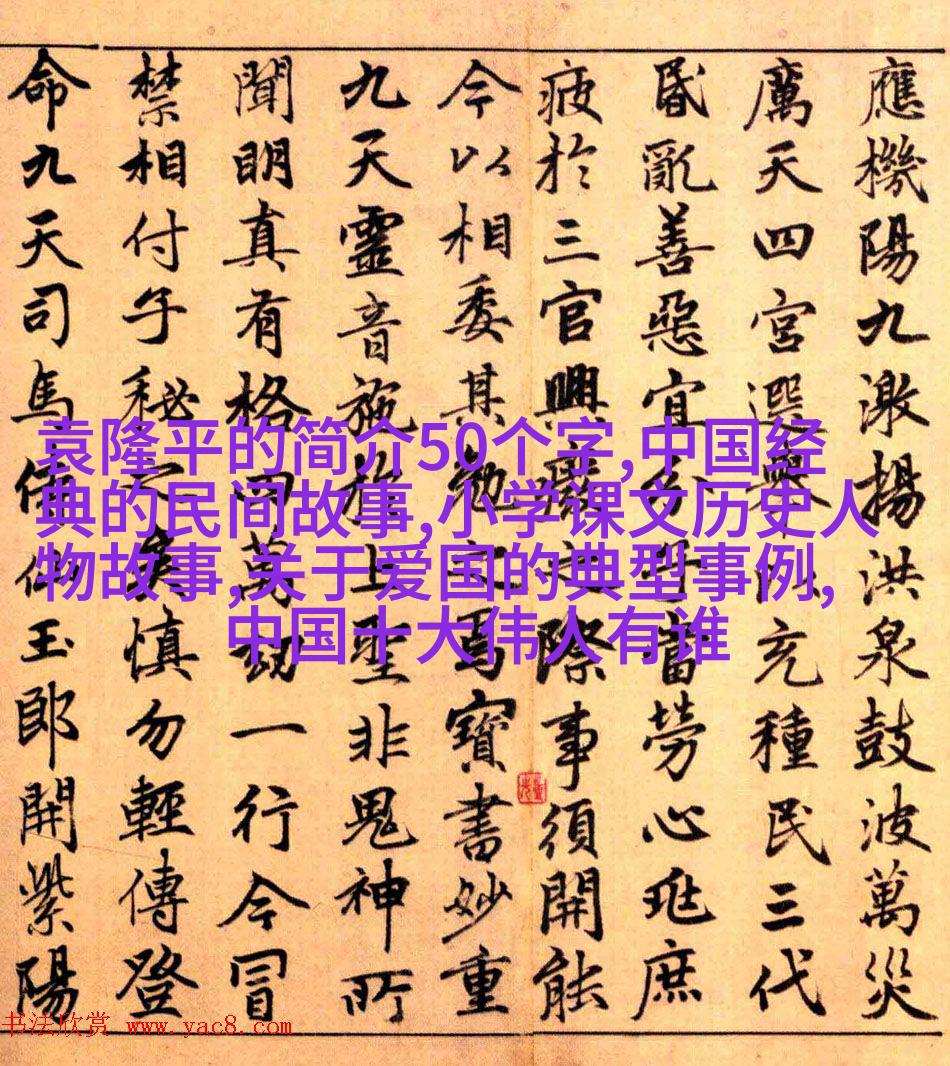 應機陽九激揚洪泉鼓波萬災
厲天四宮選舉以充種民三代
昏亂善惡宜分當勞心庶
疲於三官興廢之際事須開能
今以相委其勉之焉寶書妙重
九天靈音施於上聖非鬼神所
聞明真有格四萬劫一行今冒
禁相付子秘之矣慎勿輕傳登
命九天司馬侍仙玉郎開紫陽
袁隆平的简介50个字,中国经
典的民间故事,小学课文历史人
物故事,关于爱国的典型事例,
中国十大伟人有谁
书法欣赏 www.yac8.com